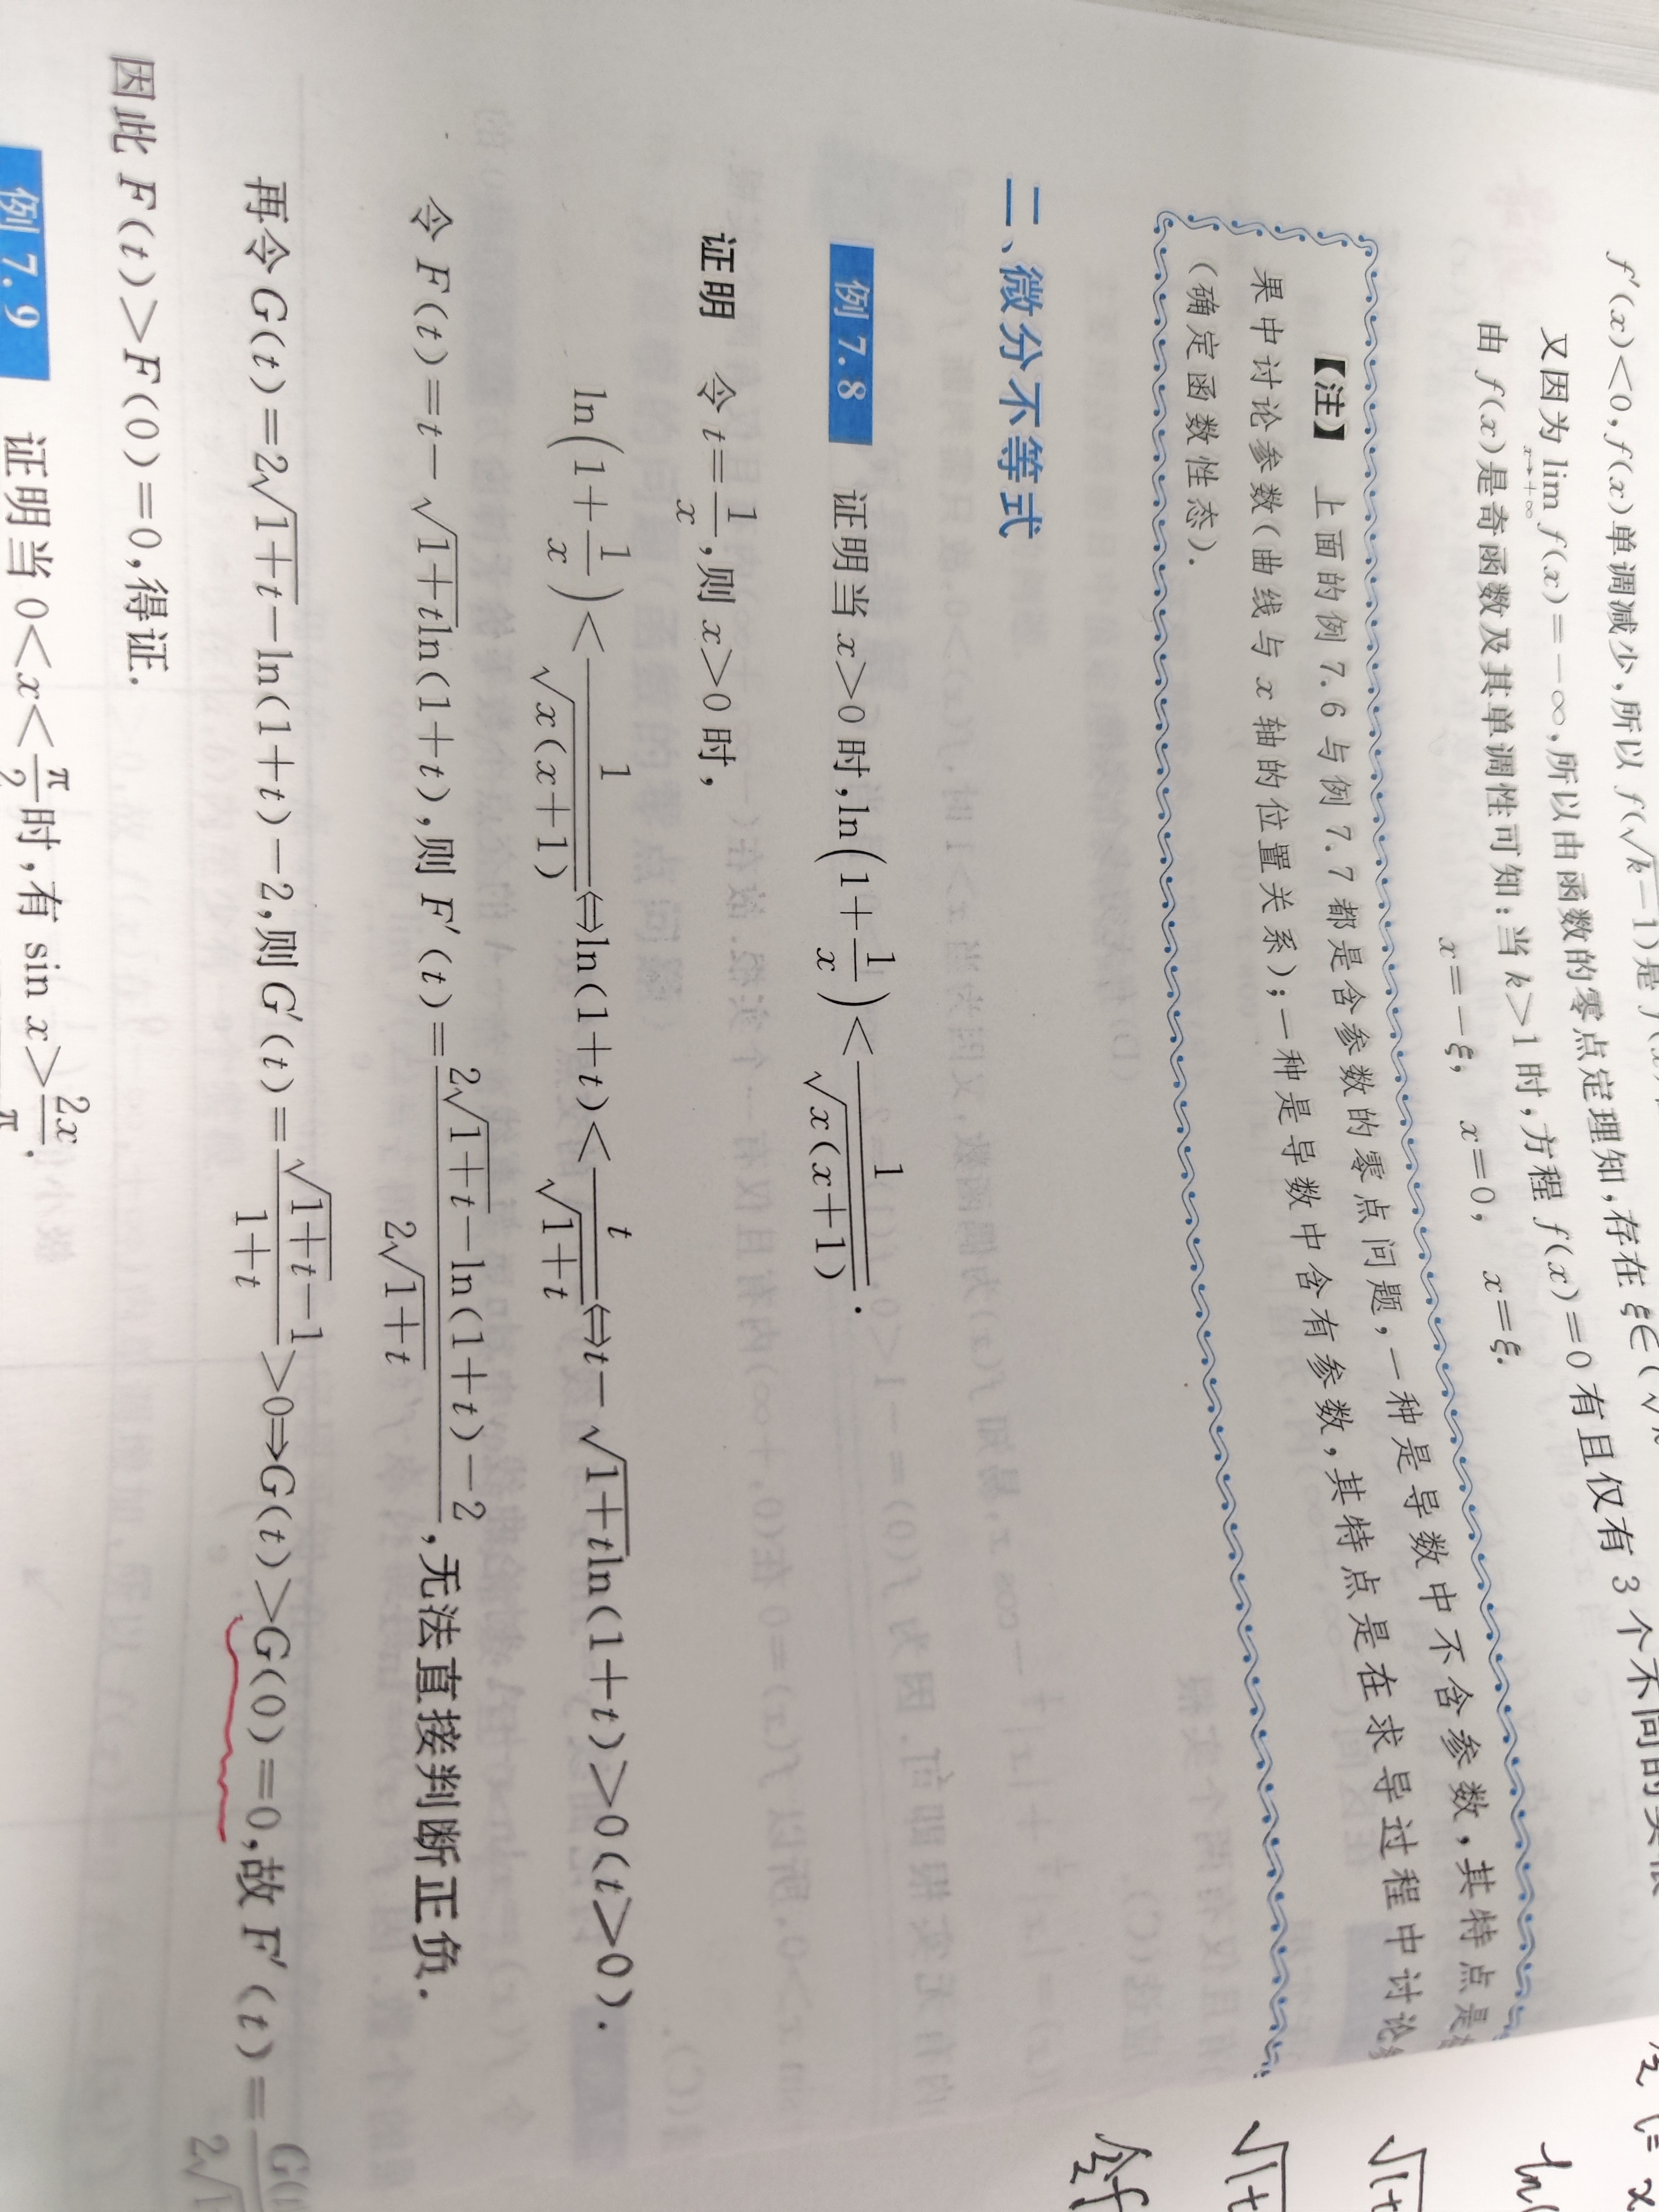 f′(x)<0,f(x)单调减少,所以 f(√(k−1))是
又因为 lim_{x→+∞} f(x)=−∞,所以由函数的零点定理知,存在 ξ∈(
由 f(x)是奇函数及其单调性可知:当 k>1 时,方程 f(x)=0 有且仅有 3 个不同的实根
x=−ξ, x=0, x=ξ.
【注】 上面的例 7.6 与例 7.7 都是含参数的零点问题,一种是导数中不含参数,其特点是
果中讨论参数(曲线与 x 轴的位置关系);一种是导数中含有参数,其特点是在求导过程中讨论
(确定函数性态).
二、微分不等式
例 7.8 证明当 x>0 时,ln(1+1/x)<1/√(x(x+1)).
证明 令 t=1/x,则 x>0 时,
ln(1+1/x)<1/√(x(x+1))⇔ln(1+t)<t/√(1+t)⇔t−√(1+t)ln(1+t)>0(t>0).
令 F(t)=t−√(1+t)ln(1+t),则 F′(t)=(2√(1+t)−ln(1+t)−2)/(2√(1+t)),无法直接判断正负.
再令 G(t)=2√(1+t)−ln(1+t)−2,则 G′(t)=(√(1+t)−1)/(1+t)>0⇒G(t)>G(0)=0,故 F′(t)=
因此 F(t)>F(0)=0,得证.
例 7.9 证明当 0<x<π/2时,有 sin x>2x/π.